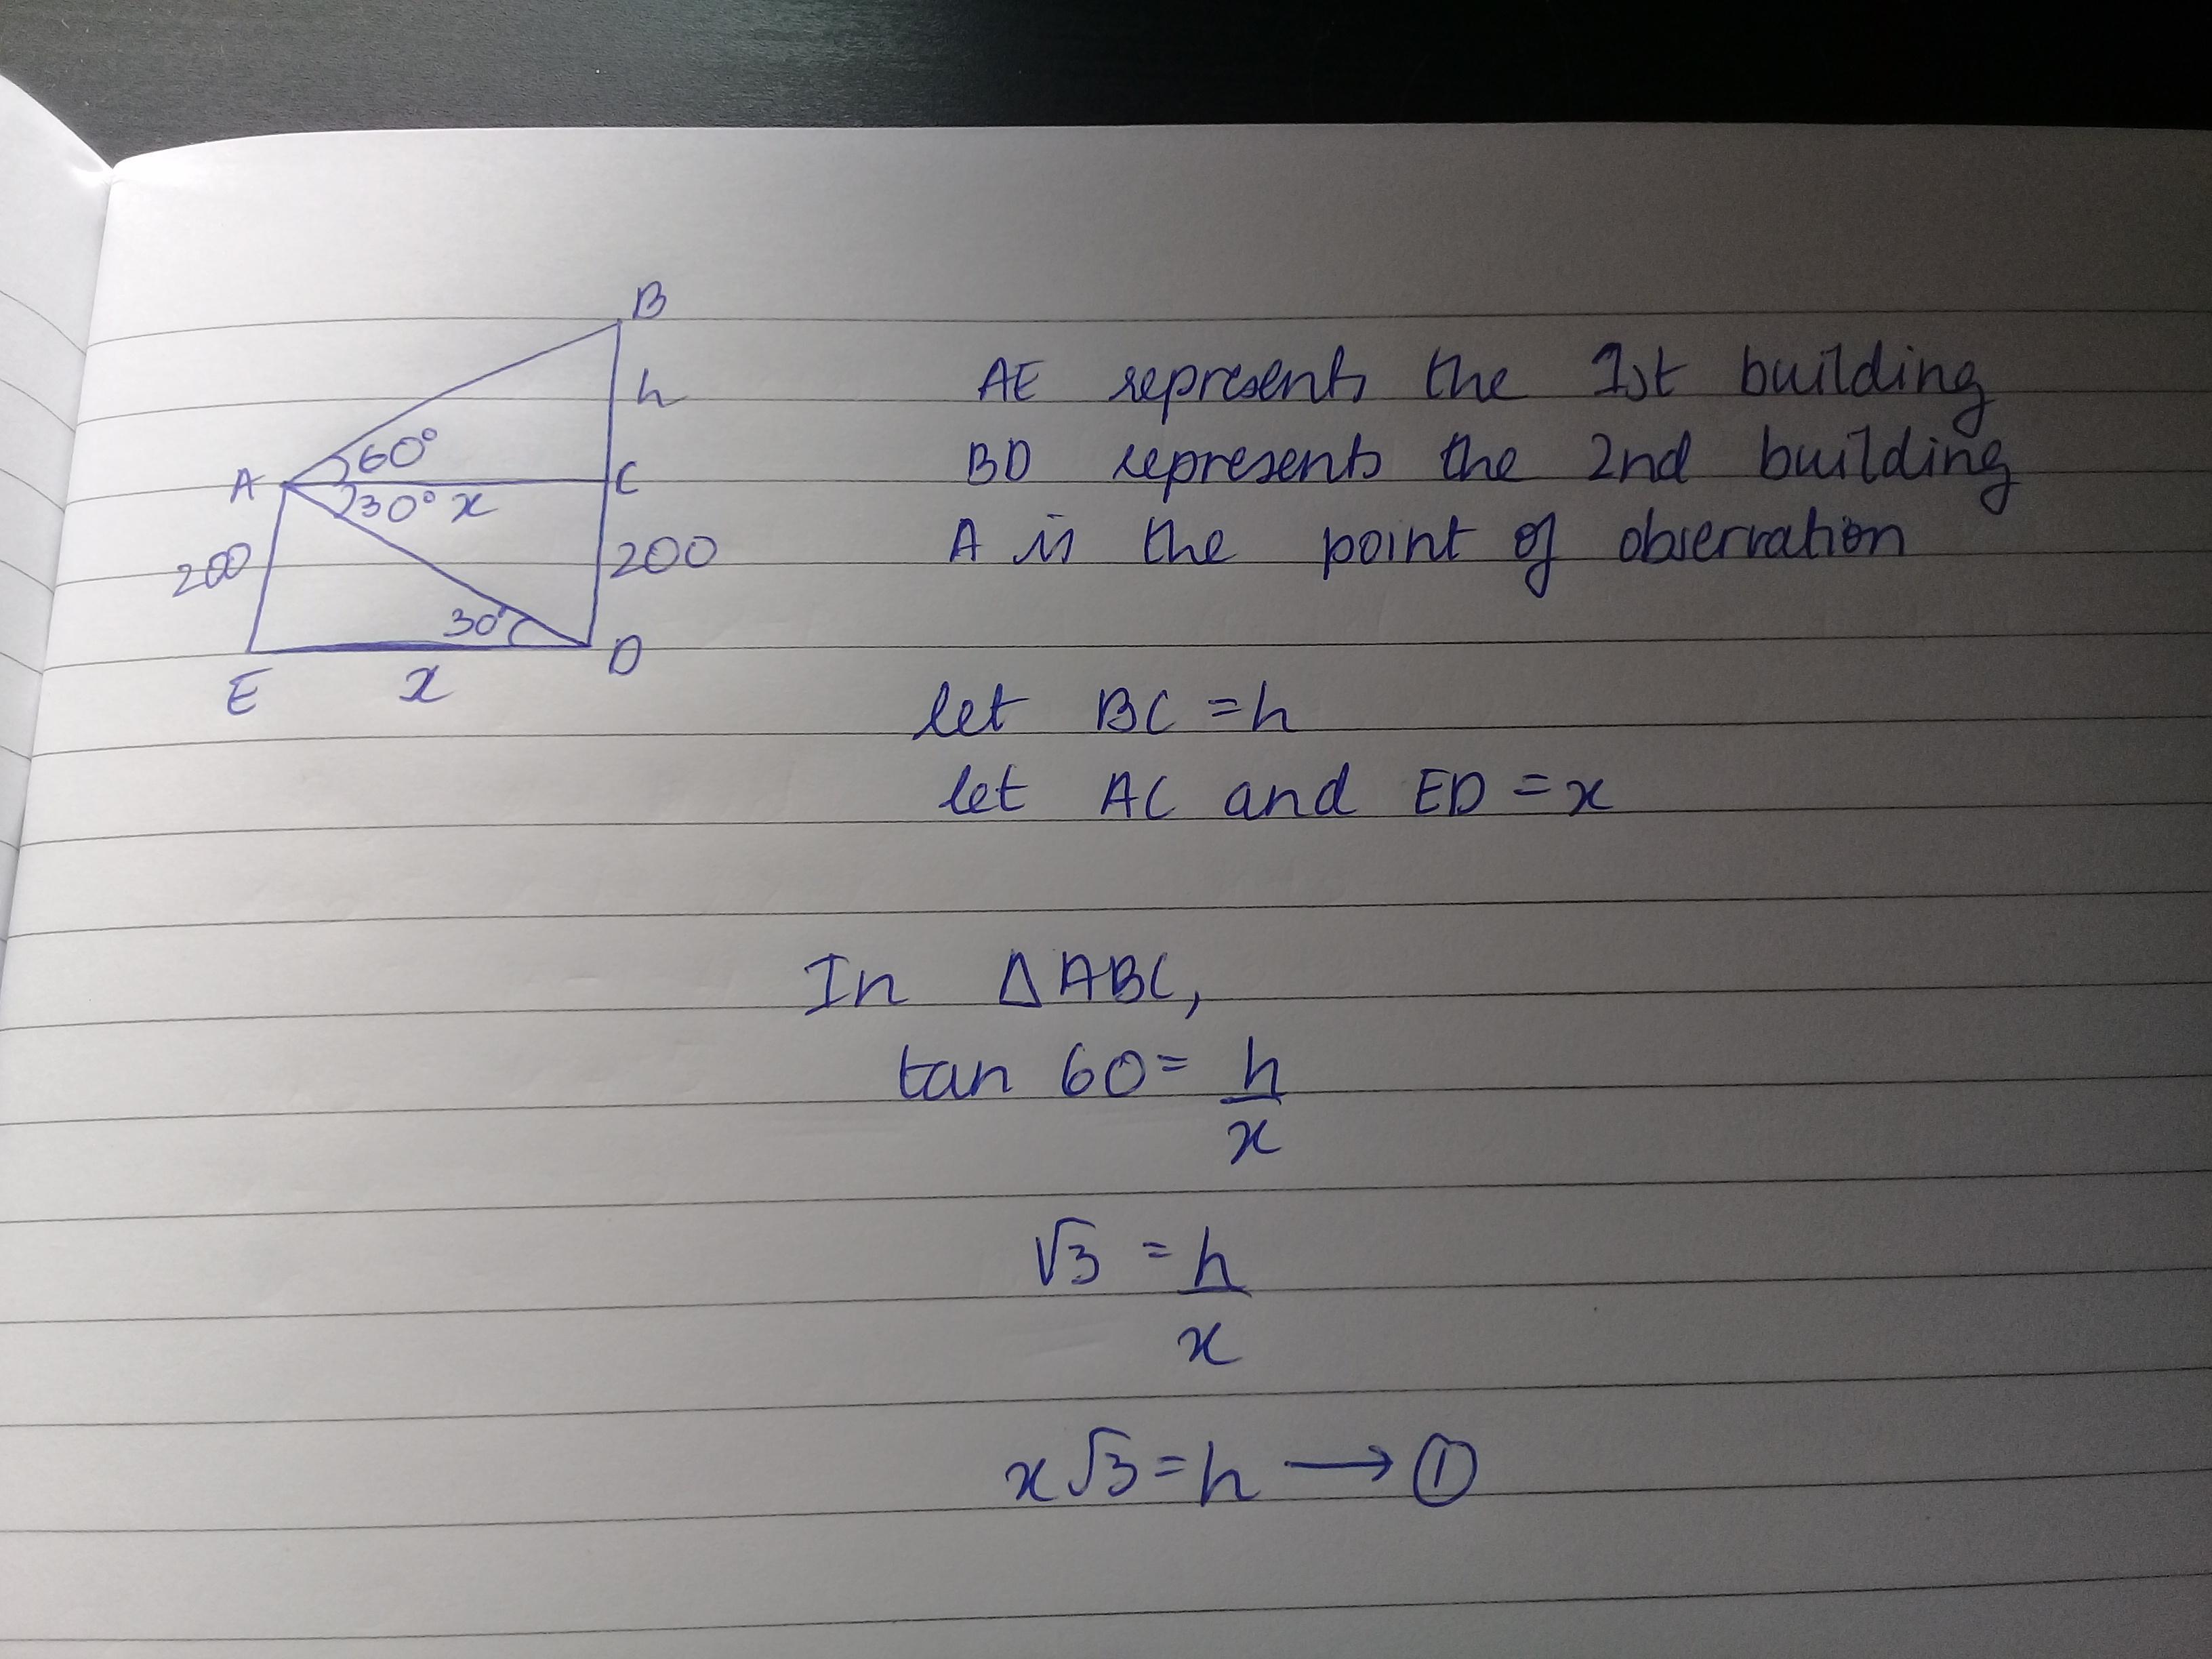 B
h
60°
A
C
30° x
200
200
30°
D
E
x
AE represents the 1st building
BD represents the 2nd building
A is the point of observation
let BC = h
let AC and ED = x
In △ABC,
tan 60 = h
x
√3 = h
x
x√3 = h → ①